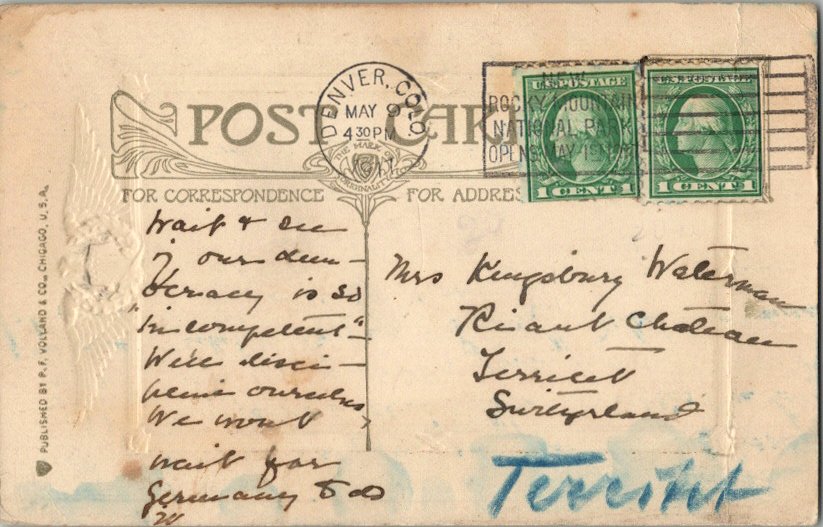 POST CARD
DENVER, COLO.
MAY 9
4 30 PM
1917
NEW
ROCKY MOUNTAIN
NATIONAL PARK
OPENS MAY
U.S. POSTAGE
1 CENT 1
U.S. POSTAGE
1 CENT 1
THE MARK OF
ORIGINALITY
FOR CORRESPONDENCE
FOR ADDRESS
PUBLISHED BY P. F. VOLLAND & CO., CHICAGO, U. S. A.
Wait & see
if our dem-
ocracy is so
"incompetent"-
We'll disci-
pline ourselves
We wont
wait for
Germany to do
it
Mrs Kingsbury Waterman
Riant Château
Territet
Switzerland
Territet